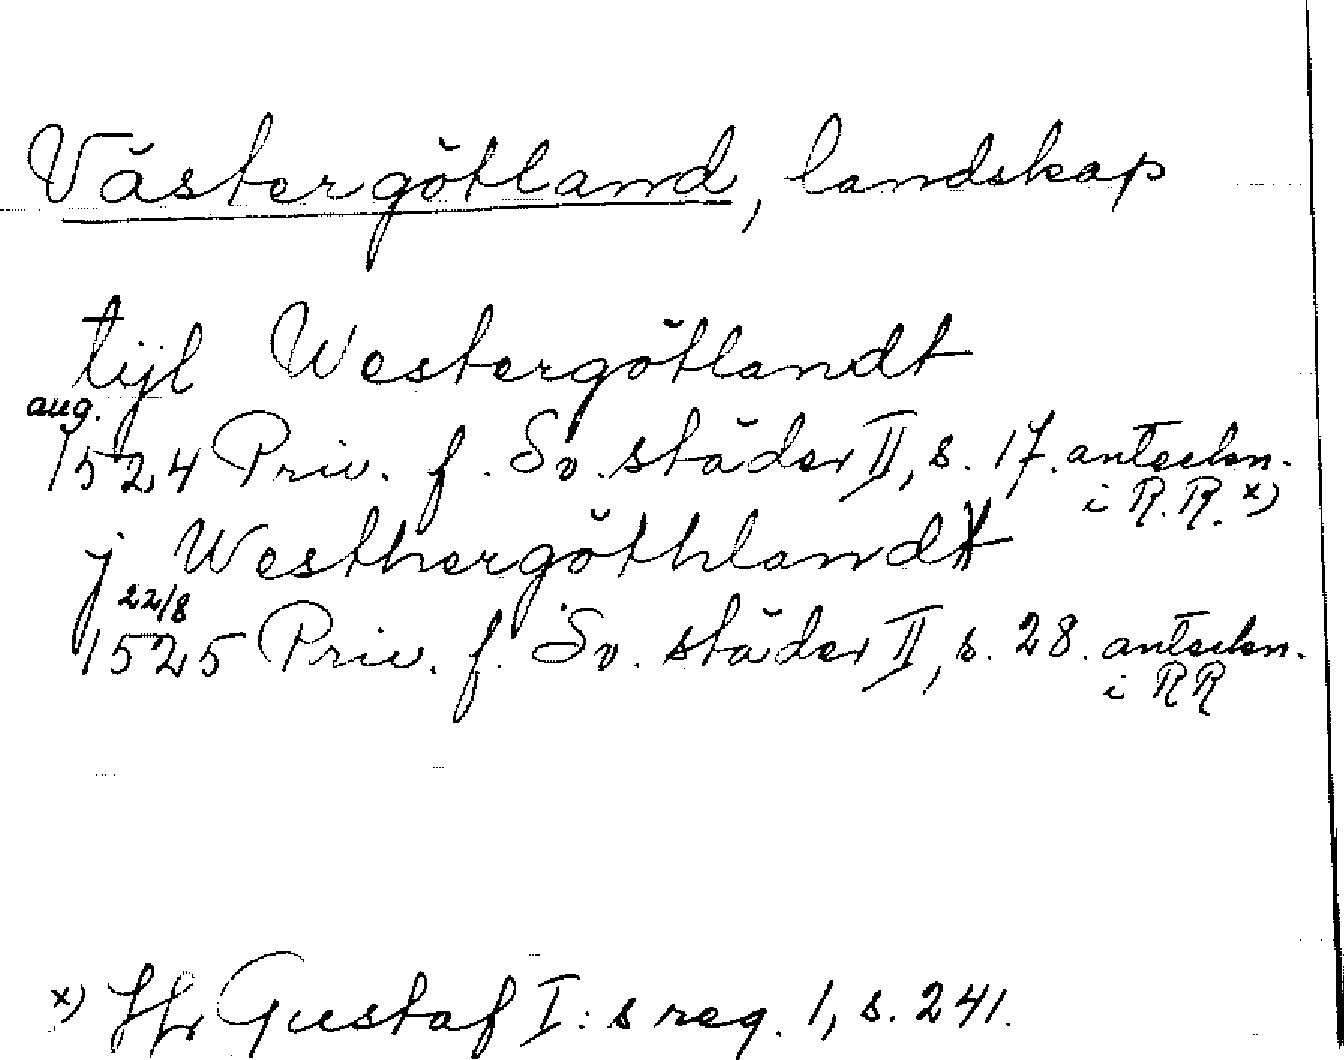 Västergötland, landskap
tijl Westergötlandt
aug.
1524 Priv. f. Sv. städer II, s. 17. anteckn.
i R.R. x)
j Westhergöthlandt
22/8
1525 Priv. f. Sv. städer II, s. 28. anteckn.
i RR
x) Jfr Gustaf I:s reg. 1, s. 241.